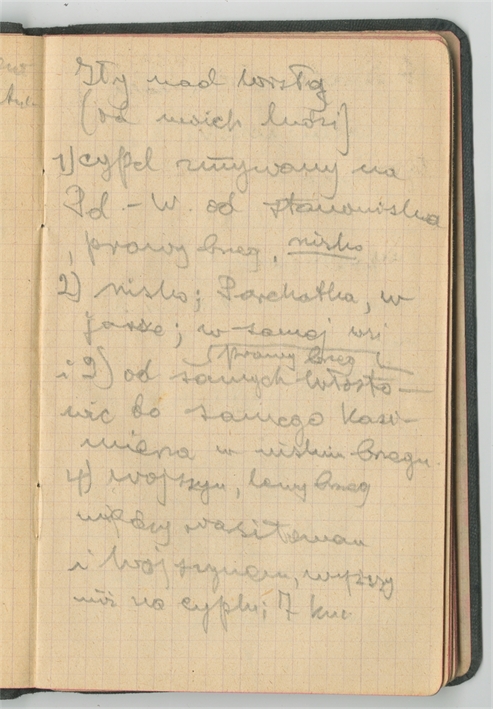 Iły nad Wisłą
(od moich ludzi)
1) cypel zmywany na
Pd.-W. od stanowiska
, prawy brzeg, nisko
2) nisko; Parchatka, w
jarze; w samej wsi
prawy brzeg
i 3) od samych Włosto-
wic do samego Kazi-
mierza w niskim brzegu
4) Wojszyn, lewy brzeg
między
i Wojszynem, wyższy
niż na cyplu; 7 km